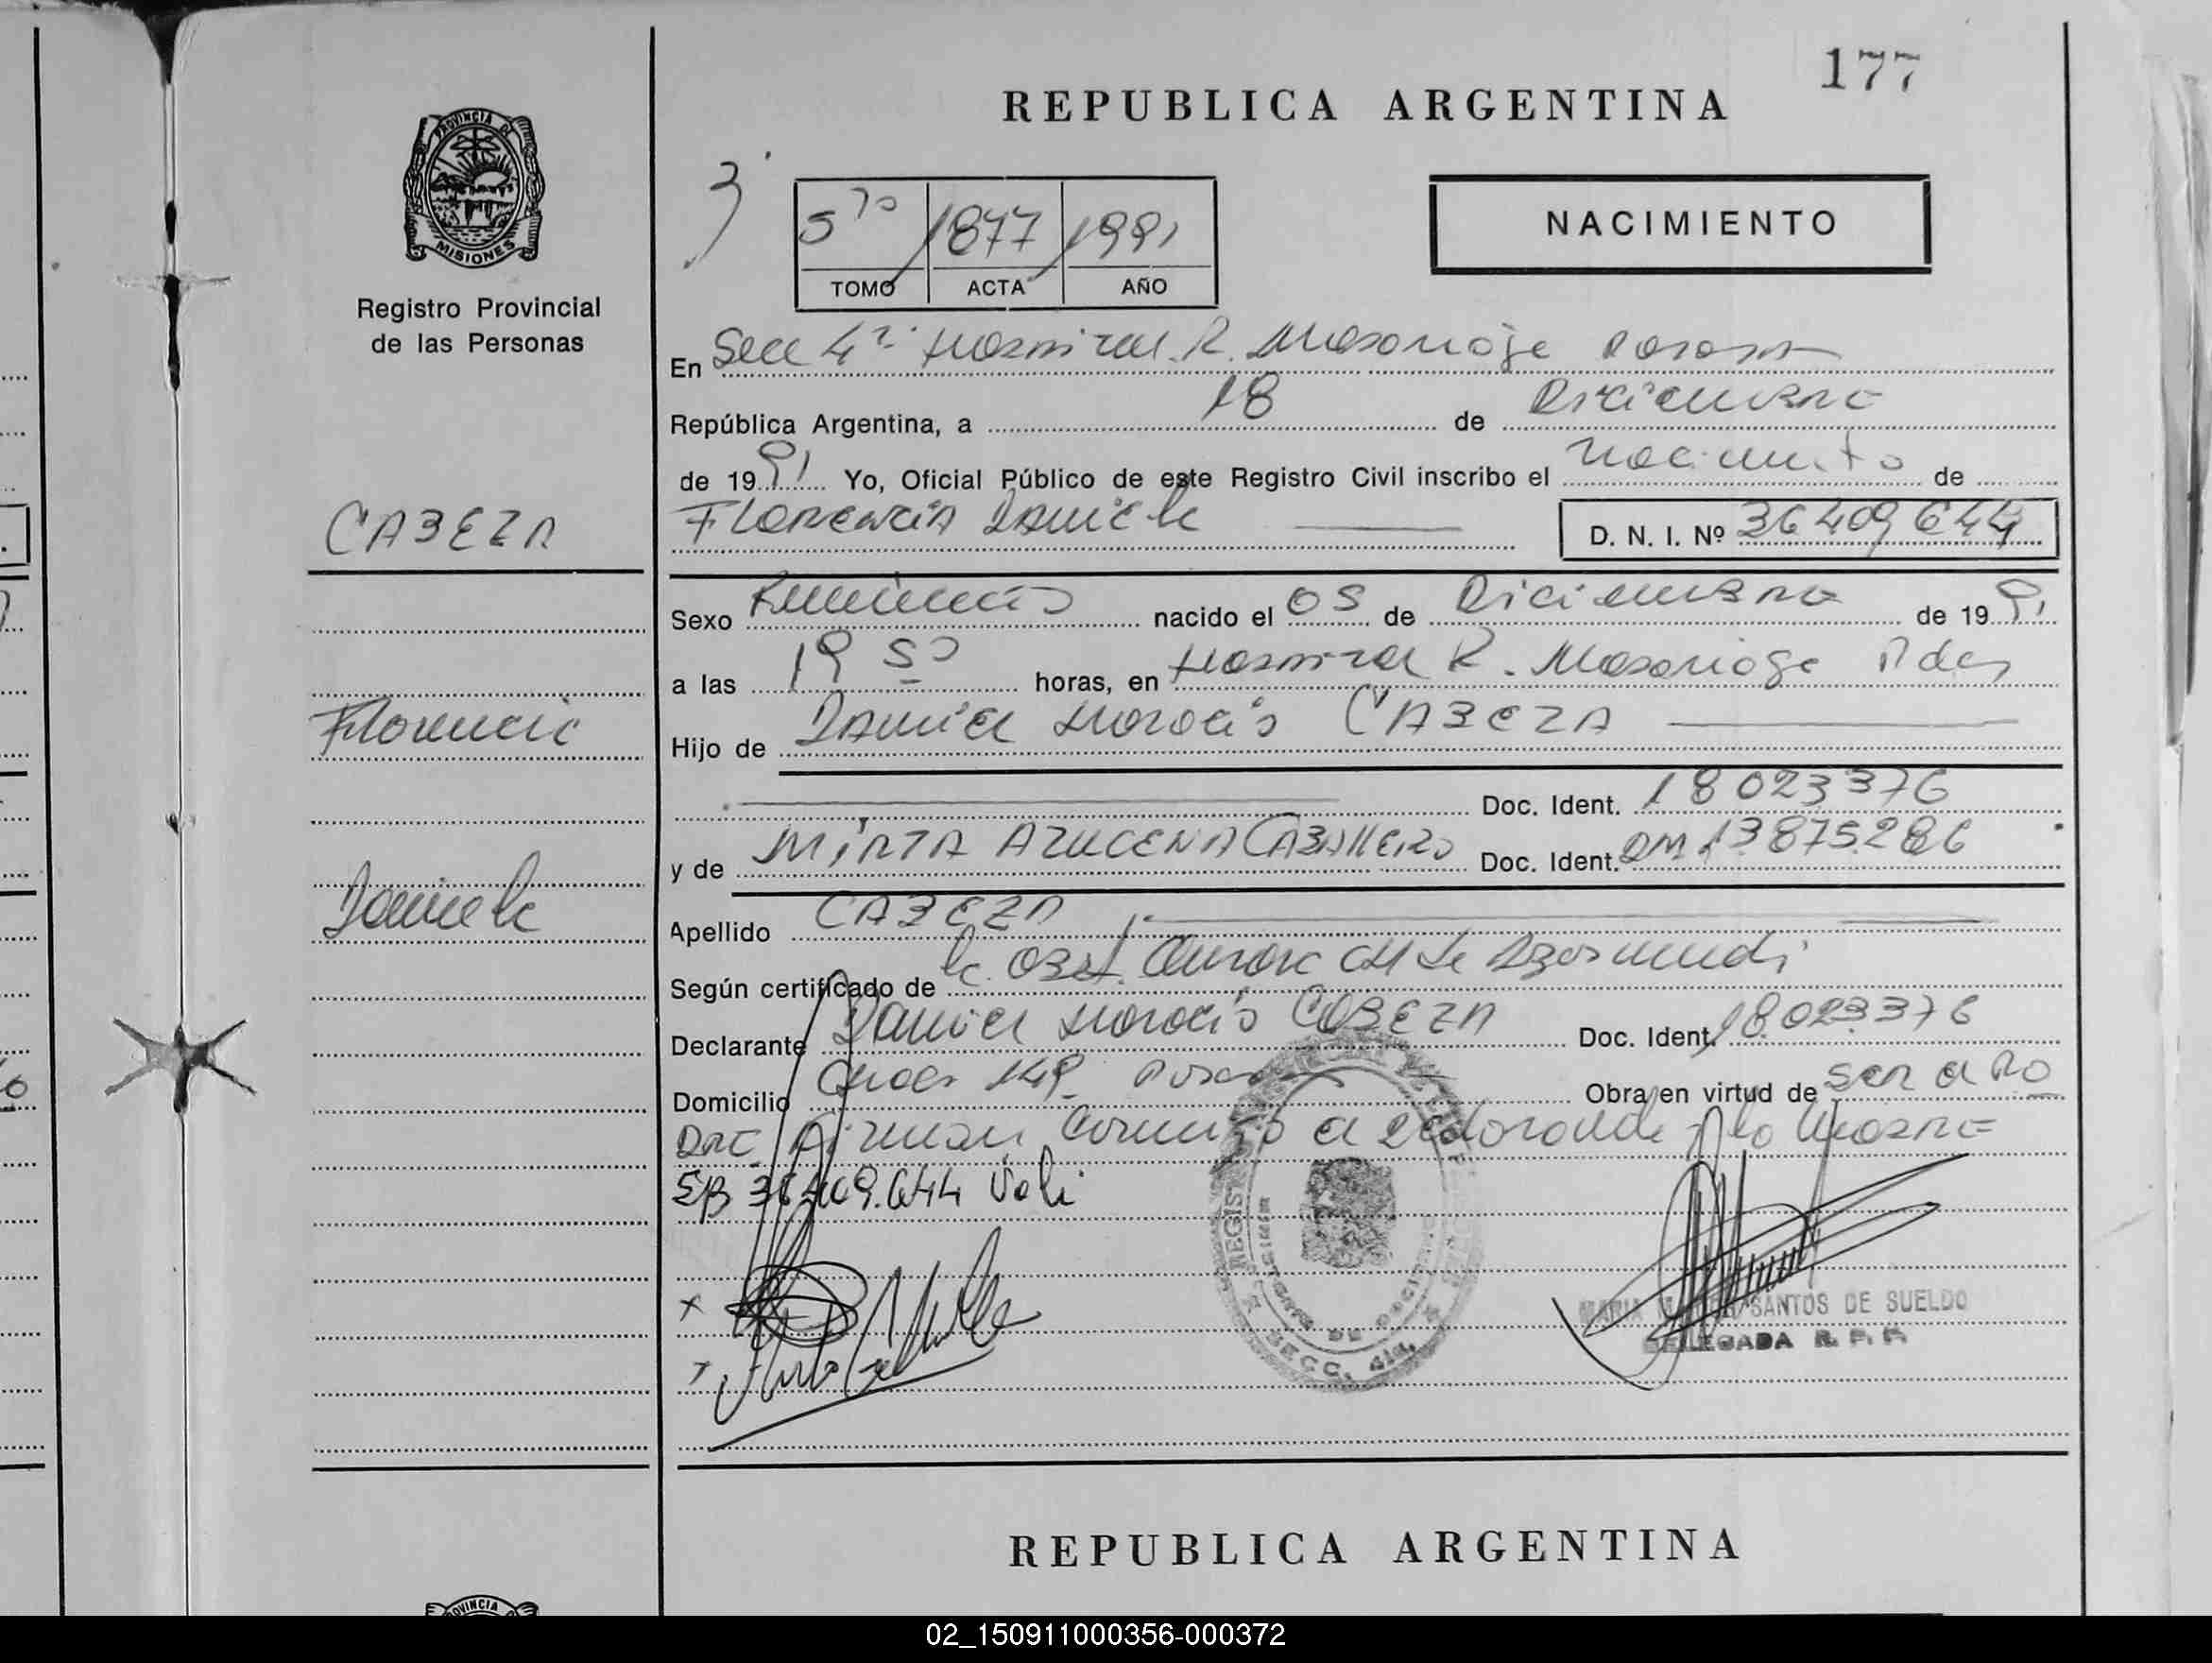 177
REPUBLICA ARGENTINA
PROVINCIA DE
MISIONES
Registro Provincial
de las Personas
3
5to 1877 1991
TOMO ACTA AÑO
NACIMIENTO
En Secc 4ª Hospital R. Madariaga Posadas
República Argentina, a 18 de Diciembre
de 1991 Yo, Oficial Público de este Registro Civil inscribo el nacimiento de
CABEZA
Florencia Daniela
D. N. I. Nº 36409644
Sexo Femenino nacido el 05 de Diciembre de 1991
a las 19 50 horas, en Hospital R. Madariaga Pdas
Florencia
Hijo de Daniel Horacio CABEZA
Doc. Ident. 18023376
y de MIRTA AZUCENA CABALLERO Doc. Ident. DM 13875286
Daniela
Apellido CABEZA
Según certificado de la Obst.
Declarante Daniel Horacio CABEZA Doc. Ident. 18.023376
Domicilio 149 Posadas Obra en virtud de ser el PD
DRE. Firman conmigo el declarante y la Madre
36409.644 Vale
x
x
REGIS
SECC. 4ta.
MARIA SANTOS DE SUELDO
DELEGADA R. P. P.
REPUBLICA ARGENTINA
PROVINCIA
02_150911000356-000372